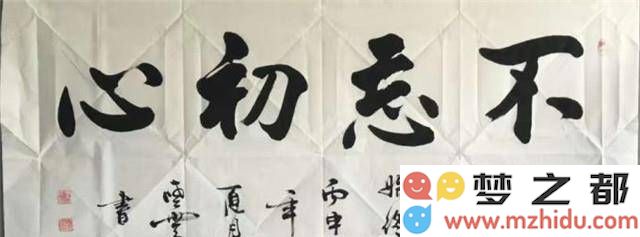 不忘初心
丙申
年
夏月
書
梦之都
www.mzhidu.com